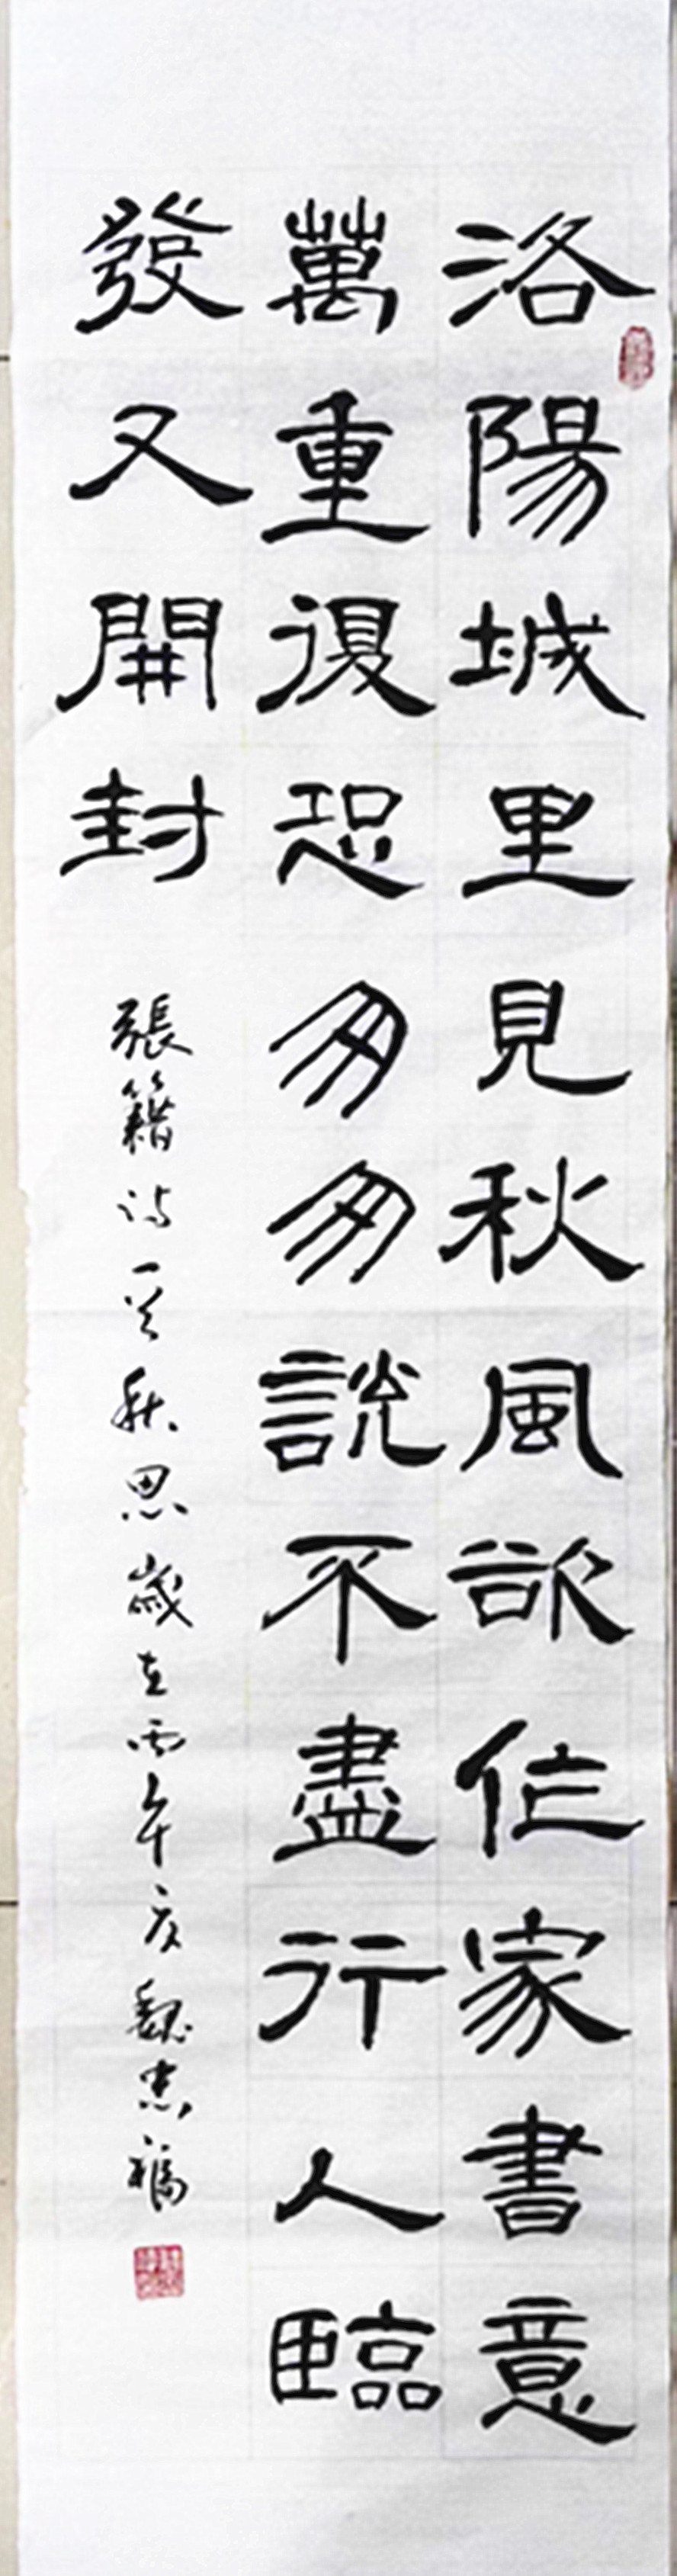 洛陽城里見秋風欲作家書意
萬重復恐匆匆說不盡行人臨
發又開封
張籍詩一首秋思歲在丙午夏魏忠福